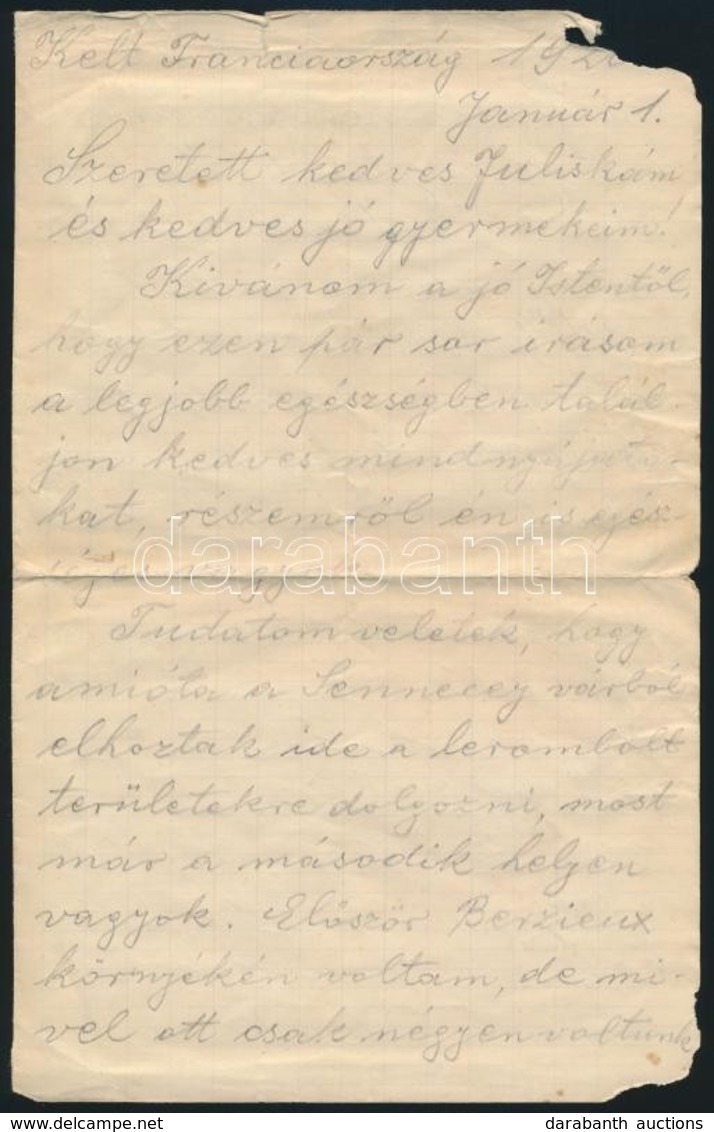 Kelt Franciaország 192
Január 1.
Szeretett kedves Juliskám
és kedves jó gyermekeim!
Kivánom a jó Istentől,
hogy ezen pár sor irásom
a legjobb egészségben talál-
jon kedves mindnyájato-
kat, részemről én is egész-
séges vagyok
Tudatom veletek, hogy
amióta a Sennecey várból
elhoztak ide a lerombolt
területekre dolgozni, most
már a második helyen
vagyok. Először Berzieux
környékén voltam, de mi-
vel ott csak négyen voltunk
darabanth
darabanth auctions